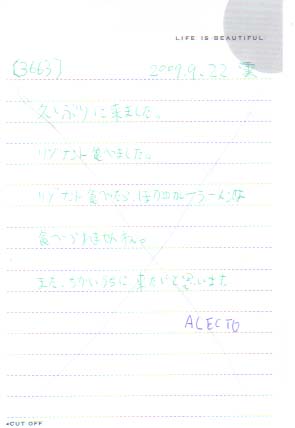 LIFE IS BEAUTIFUL
[3663] 2009.9.22
久しぶりに来ました。
リブナント食べました。
リブナント食べたら、ほかのカレーラーメンは
食べられません。
また、ちかいうちに来たいと思います
ALECTO
CUT OFF